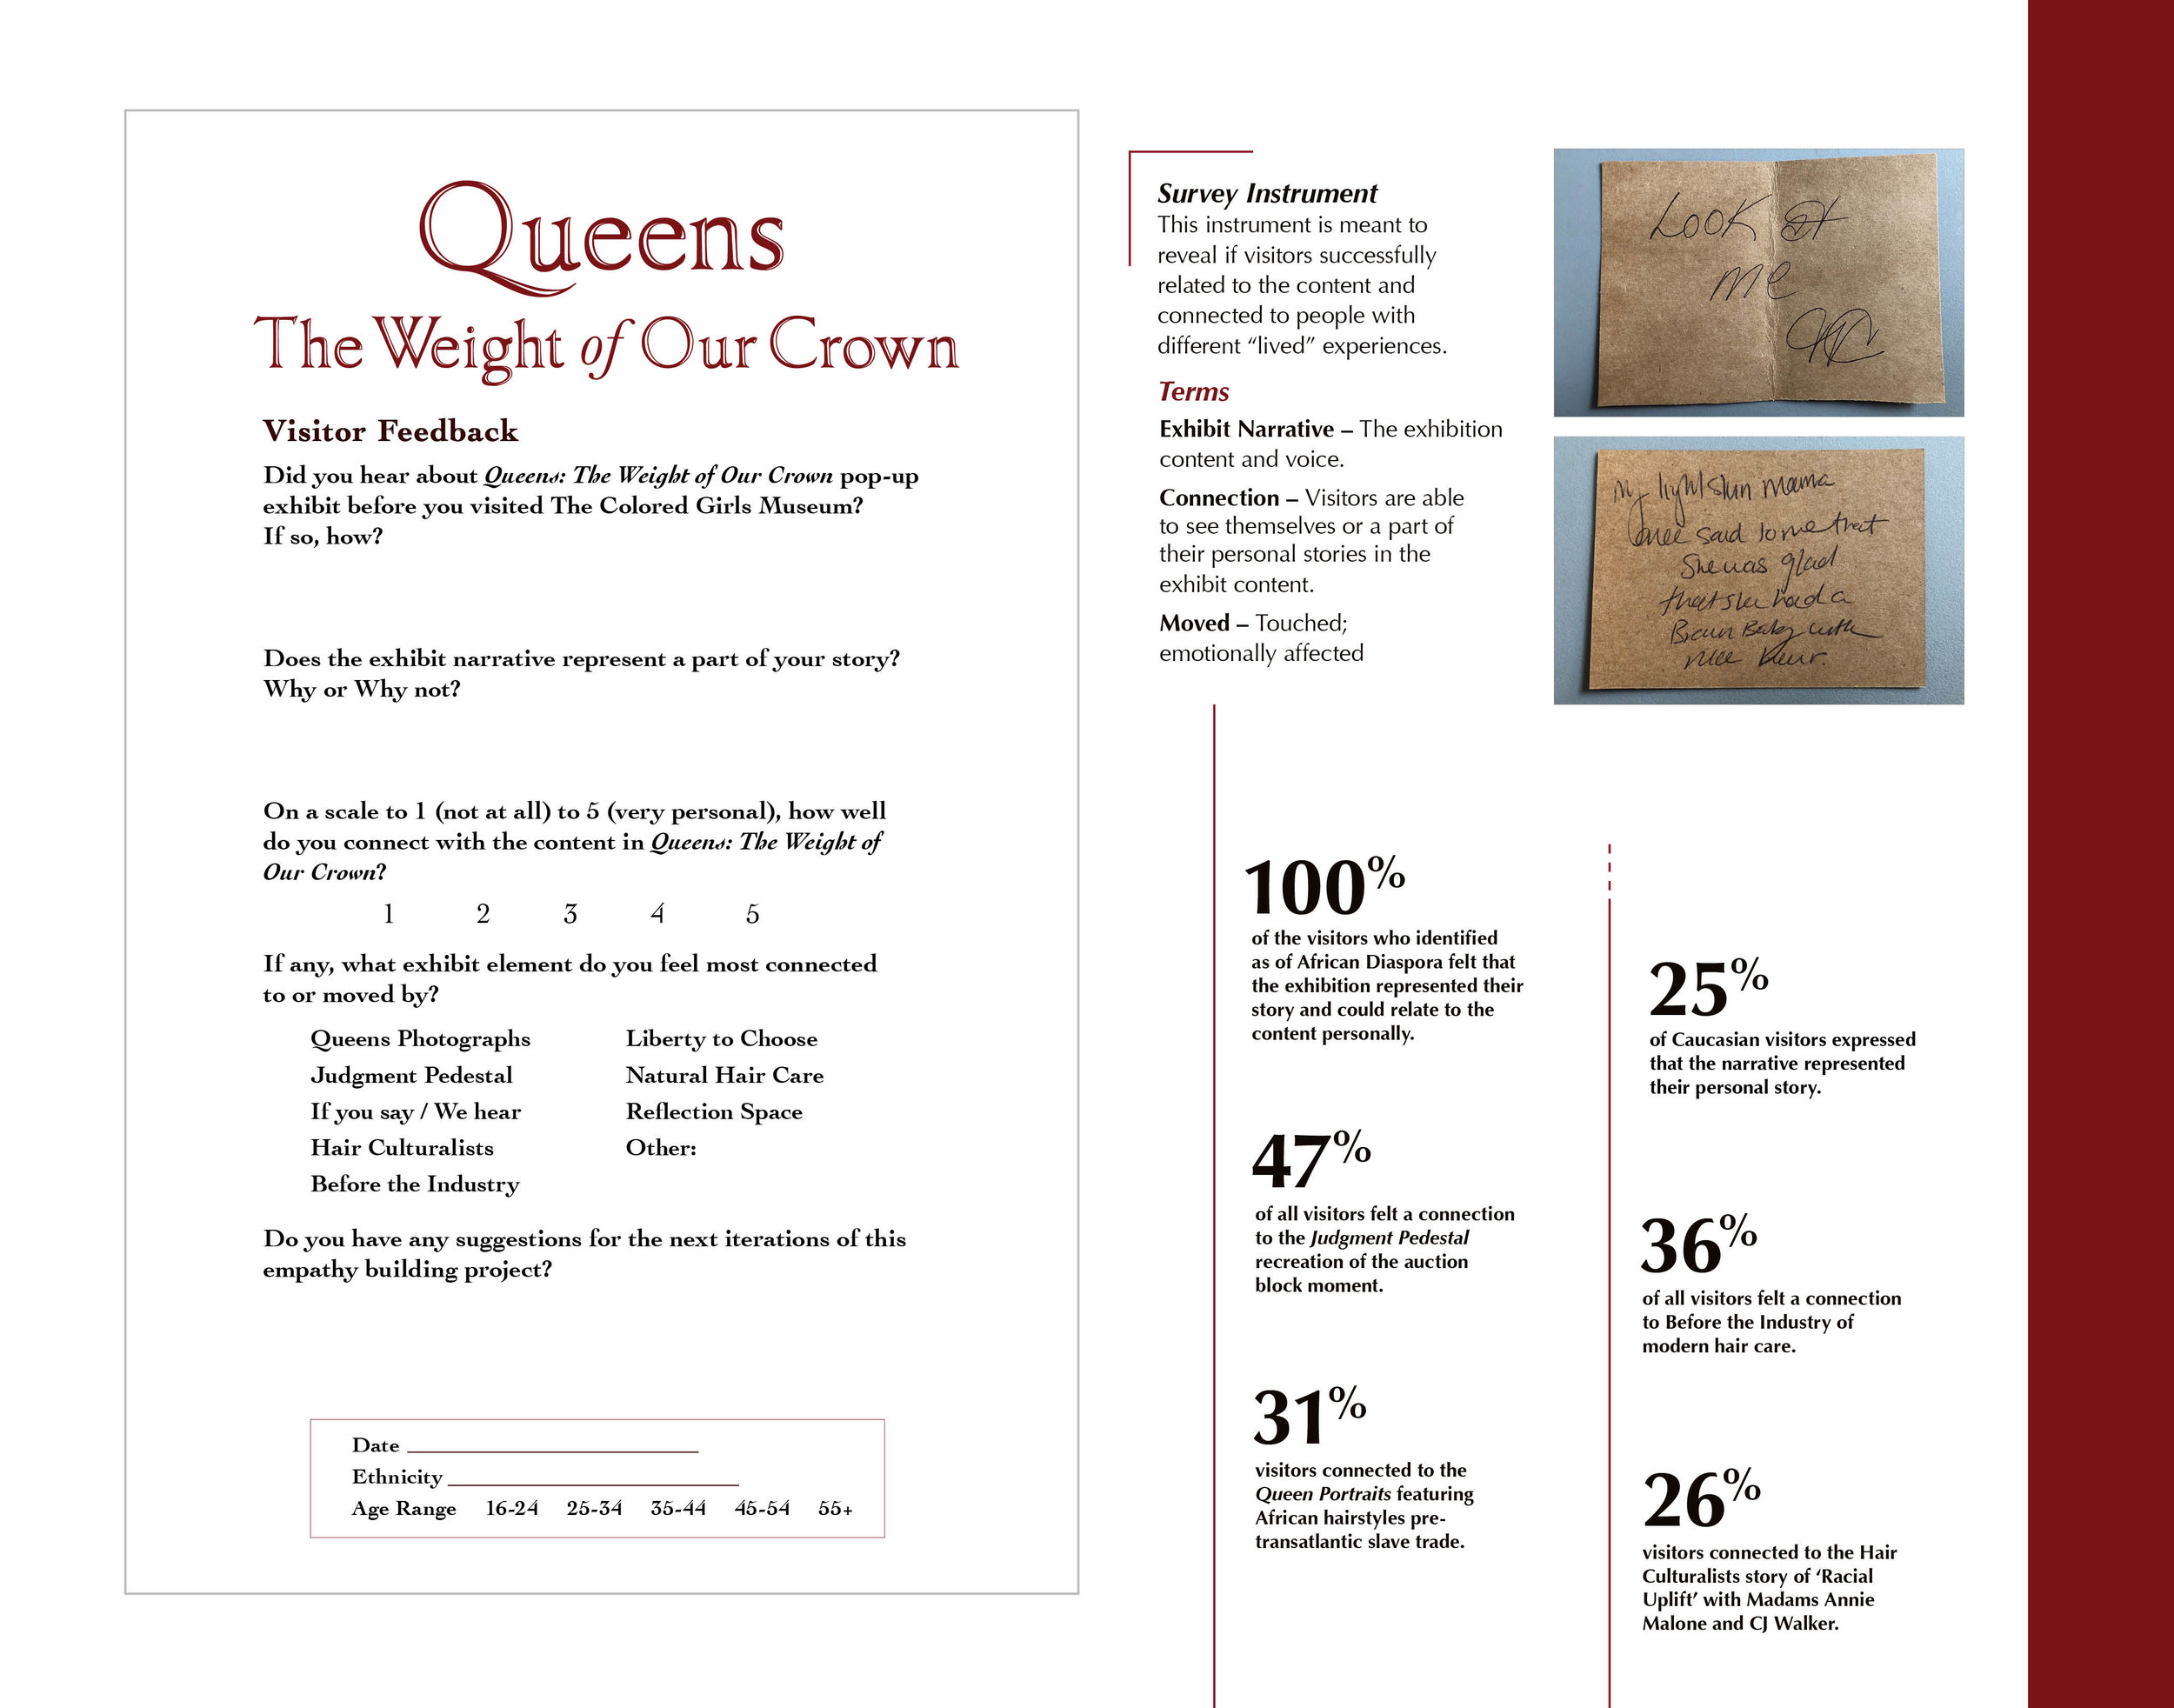 Queens
The Weight of Our Crown
Visitor Feedback
Did you hear about Queens: The Weight of Our Crown pop-up
exhibit before you visited The Colored Girls Museum?
If so, how?
Does the exhibit narrative represent a part of your story?
Why or Why not?
On a scale to 1 (not at all) to 5 (very personal), how well
do you connect with the content in Queens: The Weight of
Our Crown?
1 2 3 4 5
If any, what exhibit element do you feel most connected
to or moved by?
Queens Photographs
Judgment Pedestal
If you say / We hear
Hair Culturalists
Before the Industry
Liberty to Choose
Natural Hair Care
Reflection Space
Other:
Do you have any suggestions for the next iterations of this
empathy building project?
Date
Ethnicity
Age Range 16-24 25-34 35-44 45-54 55+
Survey Instrument
This instrument is meant to
reveal if visitors successfully
related to the content and
connected to people with
different “lived” experiences.
Terms
Exhibit Narrative – The exhibition
content and voice.
Connection – Visitors are able
to see themselves or a part of
their personal stories in the
exhibit content.
Moved – Touched;
emotionally affected
Look at
me
My lightskin mama
once said to me that
she was glad
that she had a
Brown Baby with
nice hair.
100%
of the visitors who identified
as of African Diaspora felt that
the exhibition represented their
story and could relate to the
content personally.
47%
of all visitors felt a connection
to the Judgment Pedestal
recreation of the auction
block moment.
31%
visitors connected to the
Queen Portraits featuring
African hairstyles pre-
transatlantic slave trade.
25%
of Caucasian visitors expressed
that the narrative represented
their personal story.
36%
of all visitors felt a connection
to Before the Industry of
modern hair care.
26%
visitors connected to the Hair
Culturalists story of ‘Racial
Uplift’ with Madams Annie
Malone and CJ Walker.